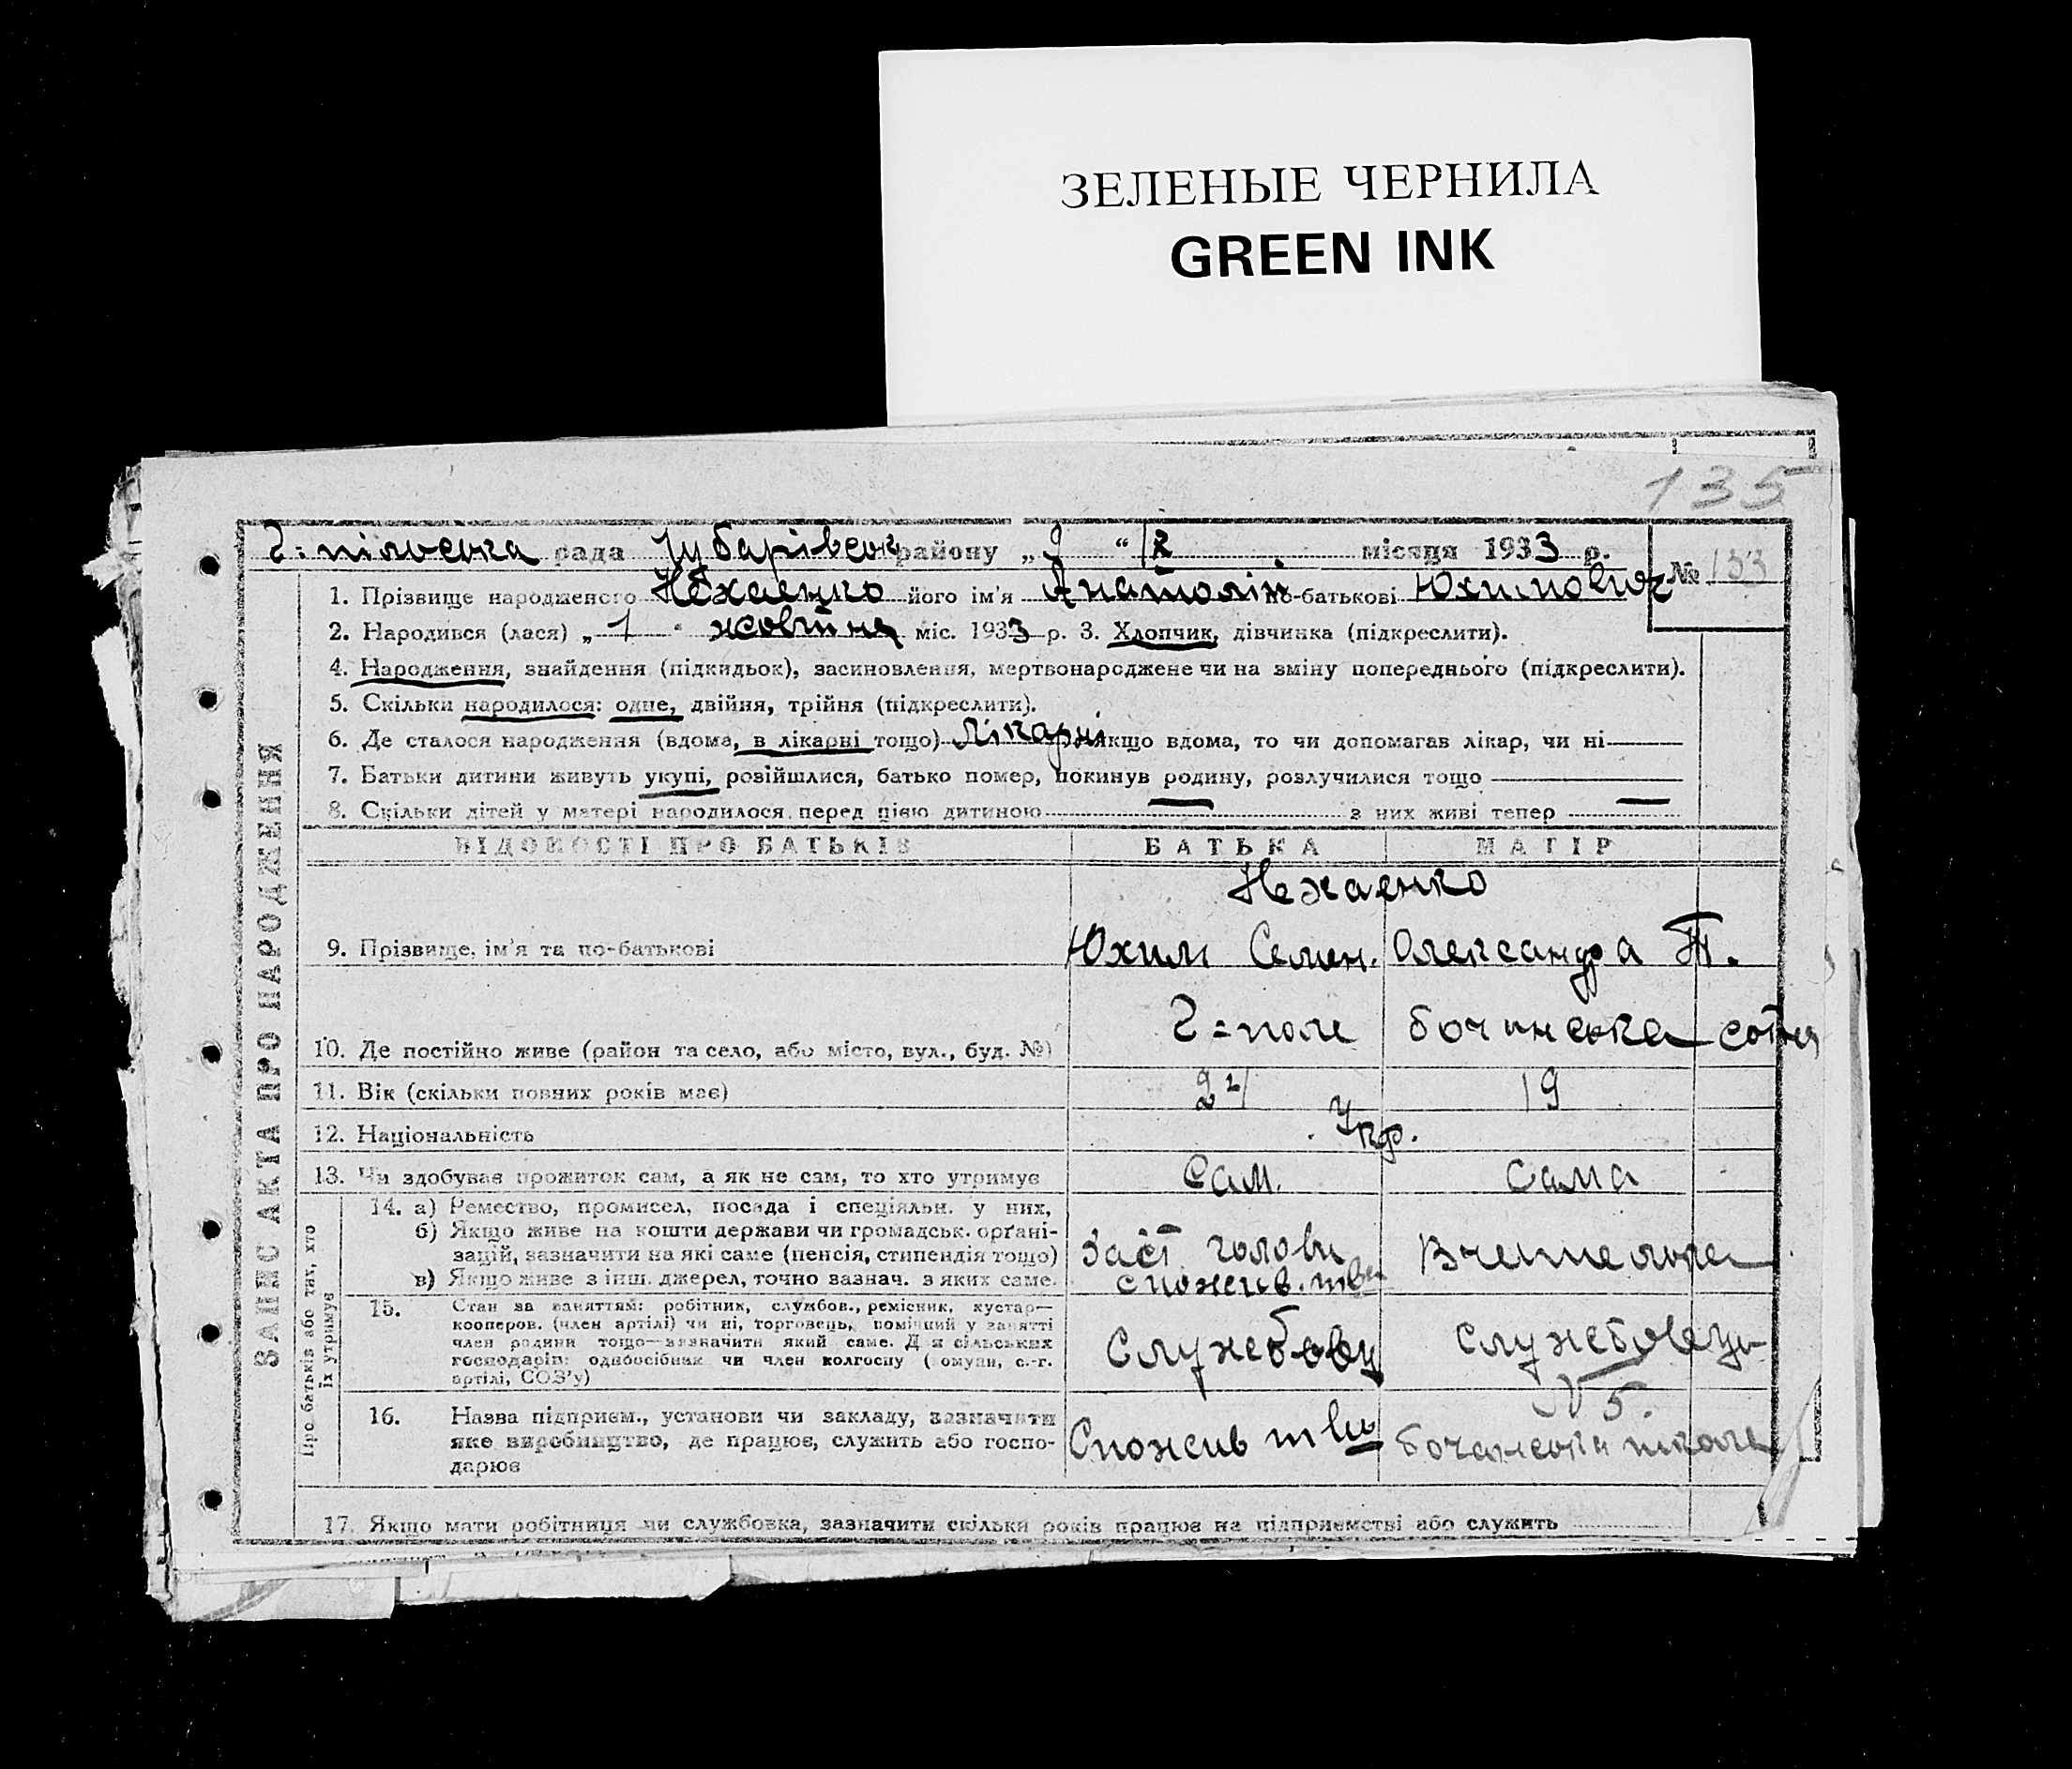 ЗЕЛЕНЫЕ ЧЕРНИЛА
GREEN INK
135
Г=пільська рада Чубарівськ району „9“ IX місяця 1933 р.
№ 133
1. Прізвище народженого Нехаенко його ім'я Анатолій по-батькові Юхимович
2. Народився (лася) „1“ жовтня міс. 1933 р. 3. Хлопчик, дівчинка (підкреслити).
4. Народження, знайдення (підкидьок), засиновлення, мертвонароджене чи на зміну попереднього (підкреслити).
5. Скільки народилося: одне, двійня, трійня (підкреслити).
6. Де сталося народження (вдома, в лікарні тощо) лікарні якщо вдома, то чи допомагав лікар, чи ні
7. Батьки дитини живуть укупі, розійшлися, батько помер, покинув родину, розлучилися тощо
8. Скільки дітей у матері народилося перед цією дитиною — з них живі тепер —
ЗАПИС АКТА ПРО НАРОДЖЕННЯ
ВІДОМОСТІ ПРО БАТЬКІВ БАТЬКА МАТІР
Нехаенко
9. Прізвище, ім'я та по-батькові Юхим Семен. Олександра Т.
10. Де постійно живе (район та село, або місто, вул., буд. №) Г=поле
11. Вік (скільки повних років має) 24 19
12. Національність Укр.
13. Чи здобуває прожиток сам, а як не сам, то хто утримує Сам. Сама
Про батьків або тих, хто їх утримує
14. а) Ремество, промисел, посада і спеціяльн. у них,
б) Якщо живе на кошти держави чи громадськ. орґані-
зацій, зазначити на які саме (пенсія, стипендія тощо)
в) Якщо живе з інш. джерел, точно зазнач. з яких саме.
Заст. голови
спожив. тва
Вчителька
15. Стан за заняттям: робітник, службов., ремісник, кустар—
кооперов. (член артілі) чи ні, торговець, помічний у занятті
член родини тощо—зазначити який саме. Для сільських
господарів: одноосібник чи член колгоспу (комуни, с.-г.
артілі, СОЗ'у)
Службовц
службовець
16. Назва підприєм., установи чи закладу, зазначити
яке виробництво, де працює, служить або госпо-
дарює
Спожив тво
№ 5.
школа
17. Якщо мати робітниця чи службовка, зазначити скільки років працює на підприємстві або служить